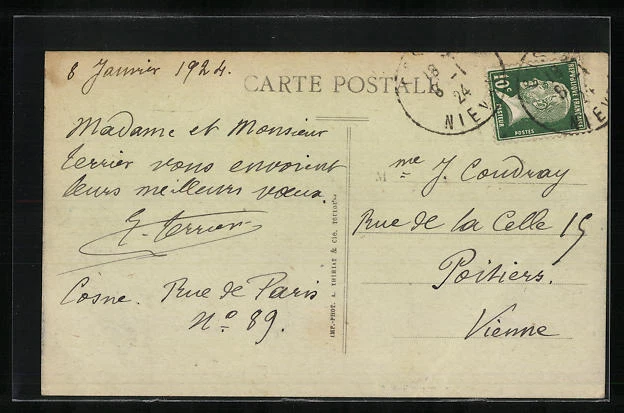 8 Janvier 1924.
CARTE POSTALE
18
8 - 1
24
NIEV
10c
REPUBLIQUE FRANCAISE
POSTES
Madame et Monsieur
Terrier vous envoient
leurs meilleurs vœux.
Terrier
Cosne. Rue de Paris
No 89.
IMP.-PHOT. A. THIRIAT & Cie, TOULOUSE
Mme J. Coudray
Rue de la Celle 15
Poitiers.
Vienne